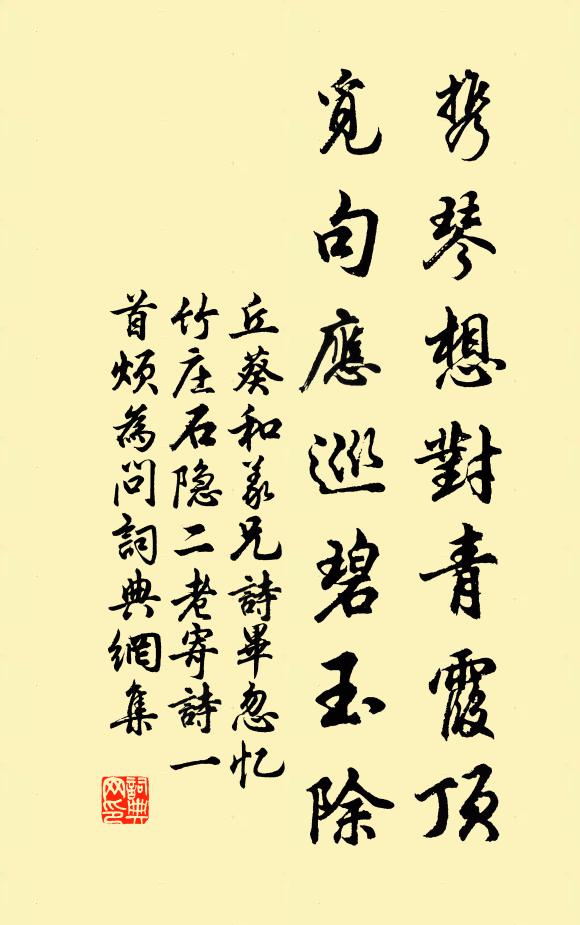 携琴想對青霞頂
覓句應巡碧玉除
丘葵和義兄詩畢忽忆
竹庄石隐二老寄詩一
首煩為問詞典網集
詞典網印